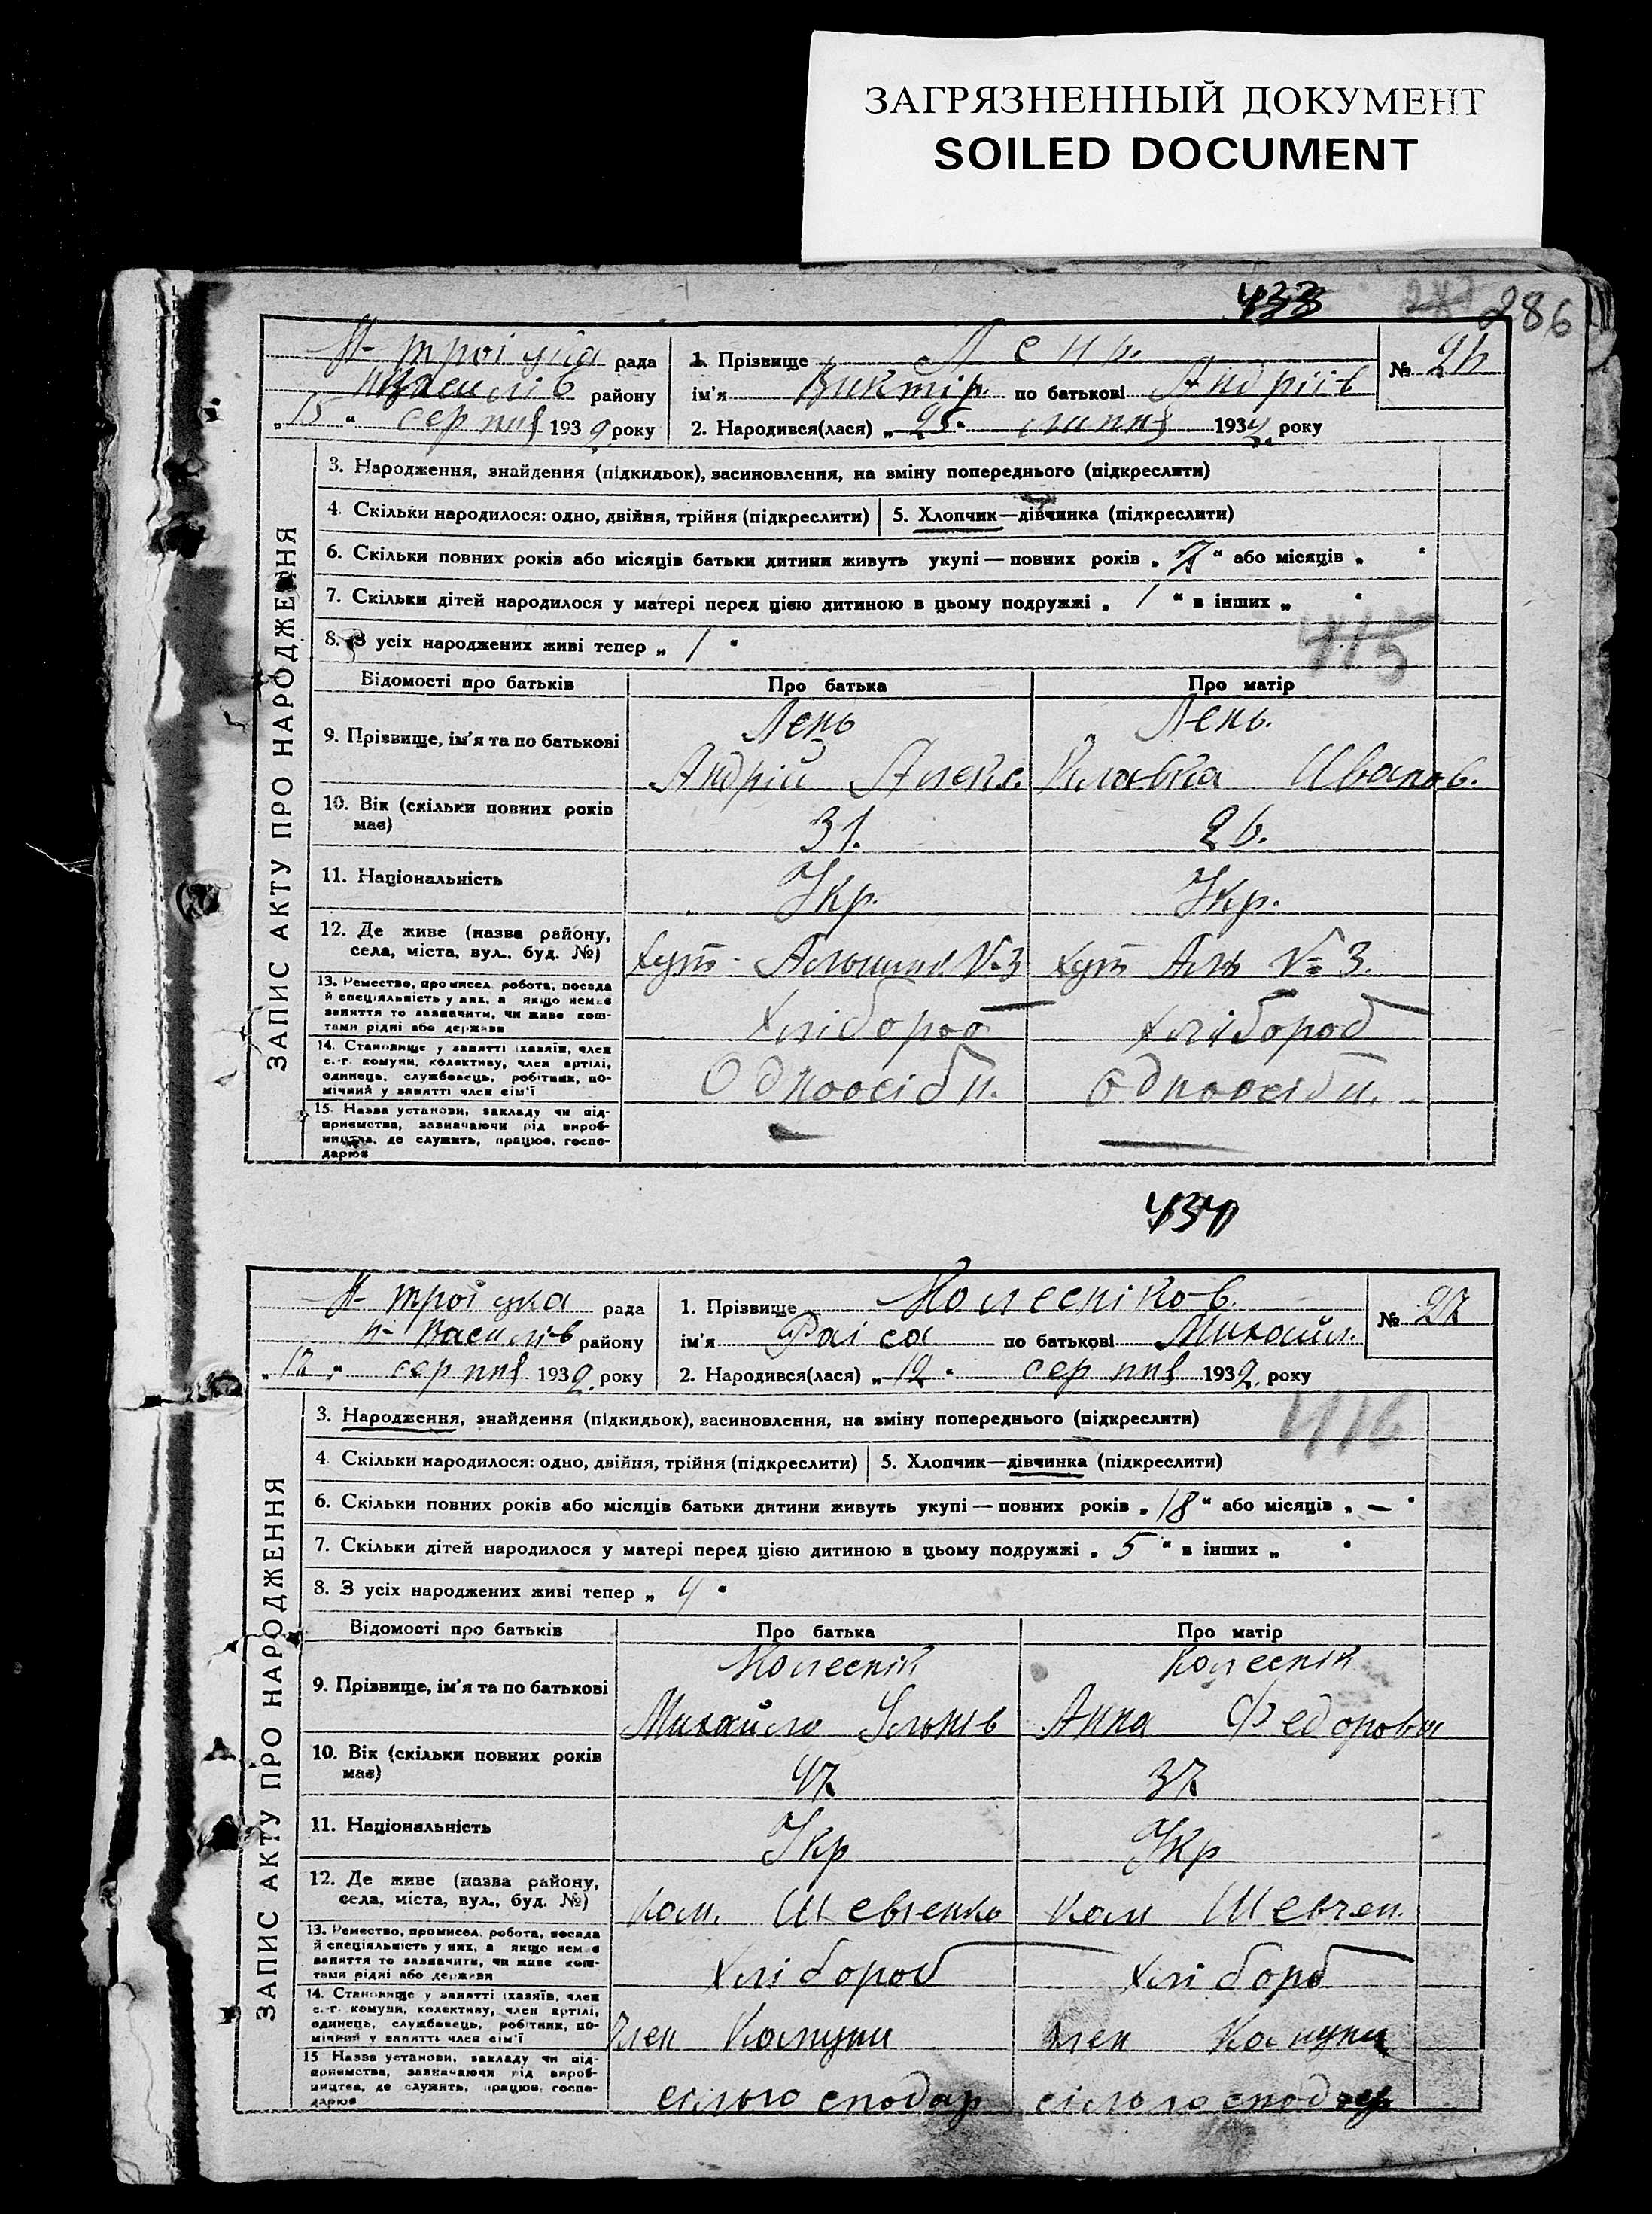 ЗАГРЯЗНЕННЫЙ ДОКУМЕНТ
SOILED DOCUMENT
433
286
ЗАПИС АКТУ ПРО НАРОДЖЕННЯ
троіцка рада
Василів району
"15" серпня 1932 року
1. Прізвище Лень
№ 26
ім'я Виктір по батькові Андріїв
2. Народився(лася) „25" липня 1932 року
3. Народження, знайдення (підкидьок), засиновлення, на зміну попереднього (підкреслити)
4. Скільки народилося: одно, двійня, трійня (підкреслити) 5. Хлопчик—дівчинка (підкреслити)
6. Скільки повних років або місяців батьки дитини живуть укупі — повних років „7" або місяців „ "
7. Скільки дітей народилося у матері перед цією дитиною в цьому подружжі „1" в інших „ "
8. З усіх народжених живі тепер „1"
415
Відомості про батьків Про батька Про матір
9. Прізвище, ім'я та по батькові
Лень Лень.
Андрій Алекс. Клавка Иванов.
10. Вік (скільки повних років має) 31. 26.
11. Національність Укр. Укр.
12. Де живе (назва району, села, міста, вул., буд. №)
хут №3 хут №3.
13. Ремество, промисел, робота, посада й спеціяльність у них, а якщо немає заняття то зазначити, чи живе коштами рідні або держави
хлібороб хлібороб
14. Становище у занятті (хазяїн, член с.-г. комуни, колективу, член артілі, одинець, службовець, робітник, помічний у занятті член сім'ї
Одноосібн. одноосібн.
15. Назва установи, закладу чи підприємства, зазначаючи рід виробництва, де служить, працює, господарює
— —
434
ЗАПИС АКТУ ПРО НАРОДЖЕННЯ
троіцка рада
Василів району
"12" серпня 1932 року
1. Прізвище Колесніков.
№ 27
ім'я Раїса по батькові Михайл.
2. Народився(лася) „12" серпня 1932 року
416
3. Народження, знайдення (підкидьок), засиновлення, на зміну попереднього (підкреслити)
4. Скільки народилося: одно, двійня, трійня (підкреслити) 5. Хлопчик—дівчинка (підкреслити)
6. Скільки повних років або місяців батьки дитини живуть укупі — повних років „18" або місяців „—"
7. Скільки дітей народилося у матері перед цією дитиною в цьому подружжі „5" в інших „ "
8. З усіх народжених живі тепер „4"
Відомості про батьків Про батька Про матір
9. Прізвище, ім'я та по батькові
Колеснік Колеснік
Михайло Анна Федоровн
10. Вік (скільки повних років має) 47 37
11. Національність Укр Укр
12. Де живе (назва району, села, міста, вул., буд. №)
Ком. Шевченко Ком Шевчен.
13. Ремество, промисел, робота, посада й спеціяльність у них, а якщо немає заняття то зазначити, чи живе коштами рідні або держави
хлібороб хлібороб
14. Становище у занятті (хазяїн, член с.-г. комуни, колективу, член артілі, одинець, службовець, робітник, помічний у занятті член сім'ї
член Комуни член Комуни
15 Назва установи, закладу чи підприємства, зазначаючи рід виробництва, де служить, працює, господарює
сільгосподар сільгосподар